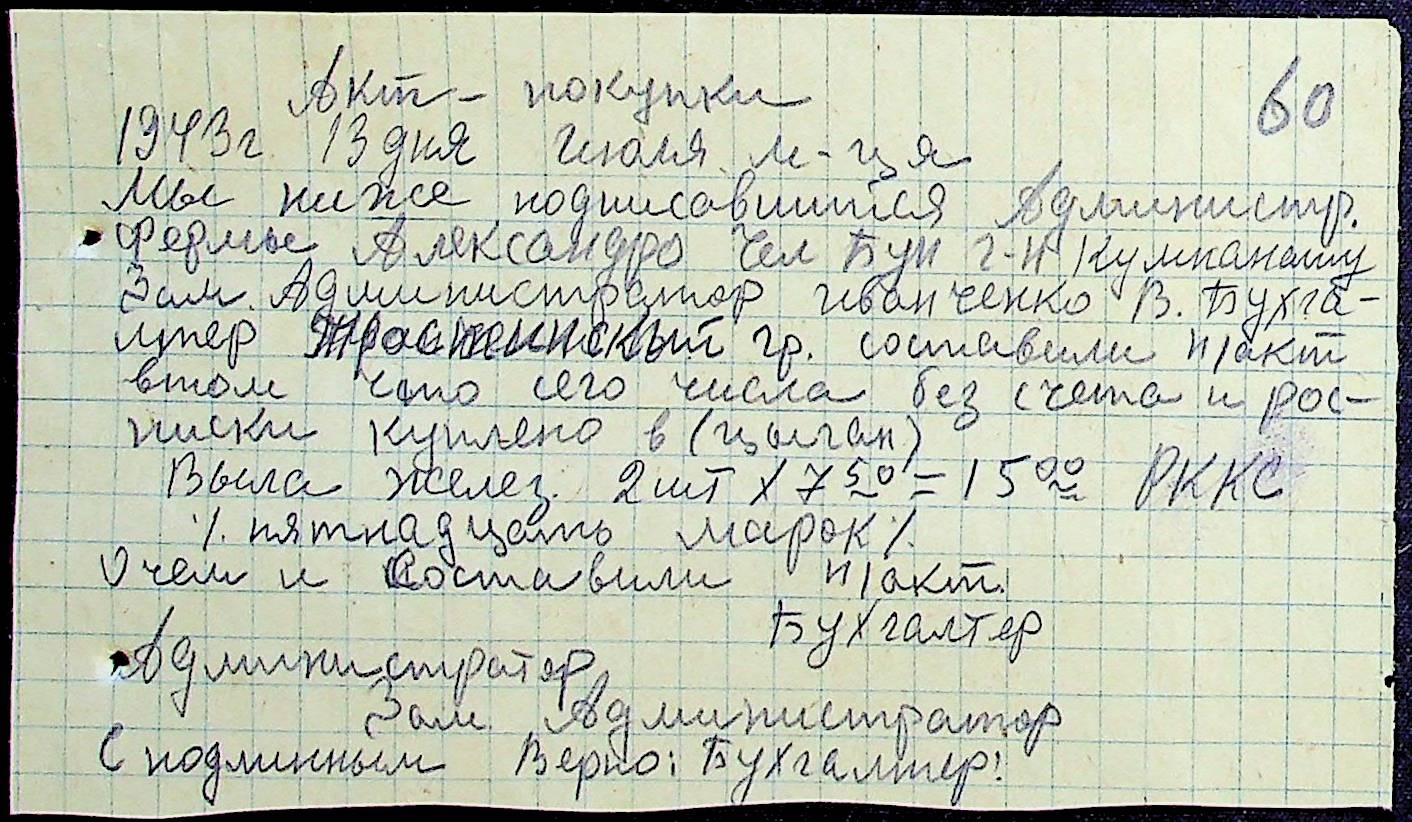 Акт - покупки
60
1943 г. 13 дня Июля м-ця
Мы ниже подписавшийся Администр.
Фермы Александро Чел Бун г-н Кумпанашу
Зам. Администратор Иванченко В. Бухга-
лтер гр. составили н/акт
втом что сего числа без счета и рос-
писки куплено в (цыган)
Выла желез. 2 шт х 7 50 = 15 00 РККС
%. пятнадцать марок %.
О чем и составили н/акт.
Бухгалтер
Администратор
Зам. Администратор
С подлинным Верно: Бухгалтер: